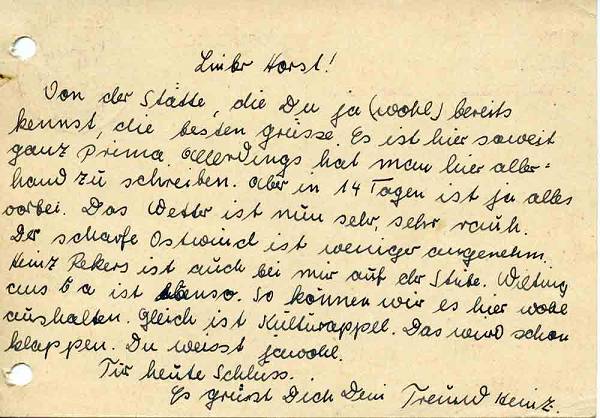 Lieber Horst!
Von der Stätte, die Du ja (wohl) bereits
kennst, die besten grüsse. Es ist hier soweit
ganz prima. Allerdings hat man hier aller-
hand zu schreiben. Aber in 14 Tagen ist ja alles
vorbei. Das Wetter ist nun sehr, sehr rauh.
Der scharfe Ostwind ist weniger angenehm.
Heinz Rekers ist auch bei mir auf der Stube. Wilting
aus 6a ist ebenso. So können wir es hier wohl
aushalten. Gleich ist Kulturappel. Das wird schon
klappen. Du weisst jawohl.
Für heute Schluss.
Es grüsst Dich Dein Freund Heinz.